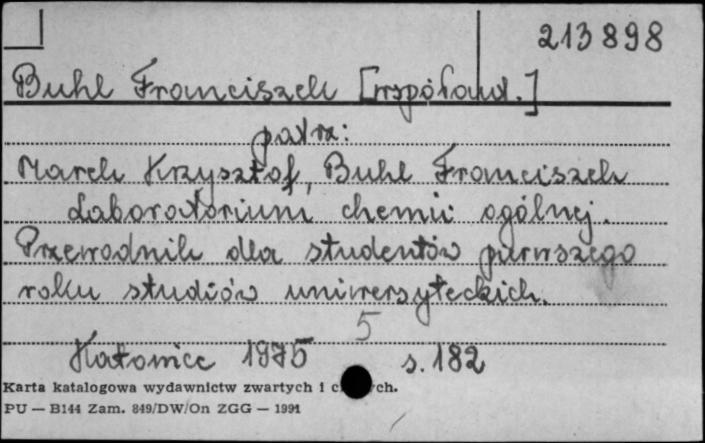 213898
Buhl Franciszek [współaut.]
patrz:
Marek Krzysztof, Buhl Franciszek
Laboratorium chemii ogólnej.
Przewodnik dla studentów pierwszego
roku studiów uniwersyteckich.
5
Katowice 1975 s. 182
Karta katalogowa wydawnictw zwartych i ch.
PU — B144 Zam. 849/DW/On ZGG — 1991